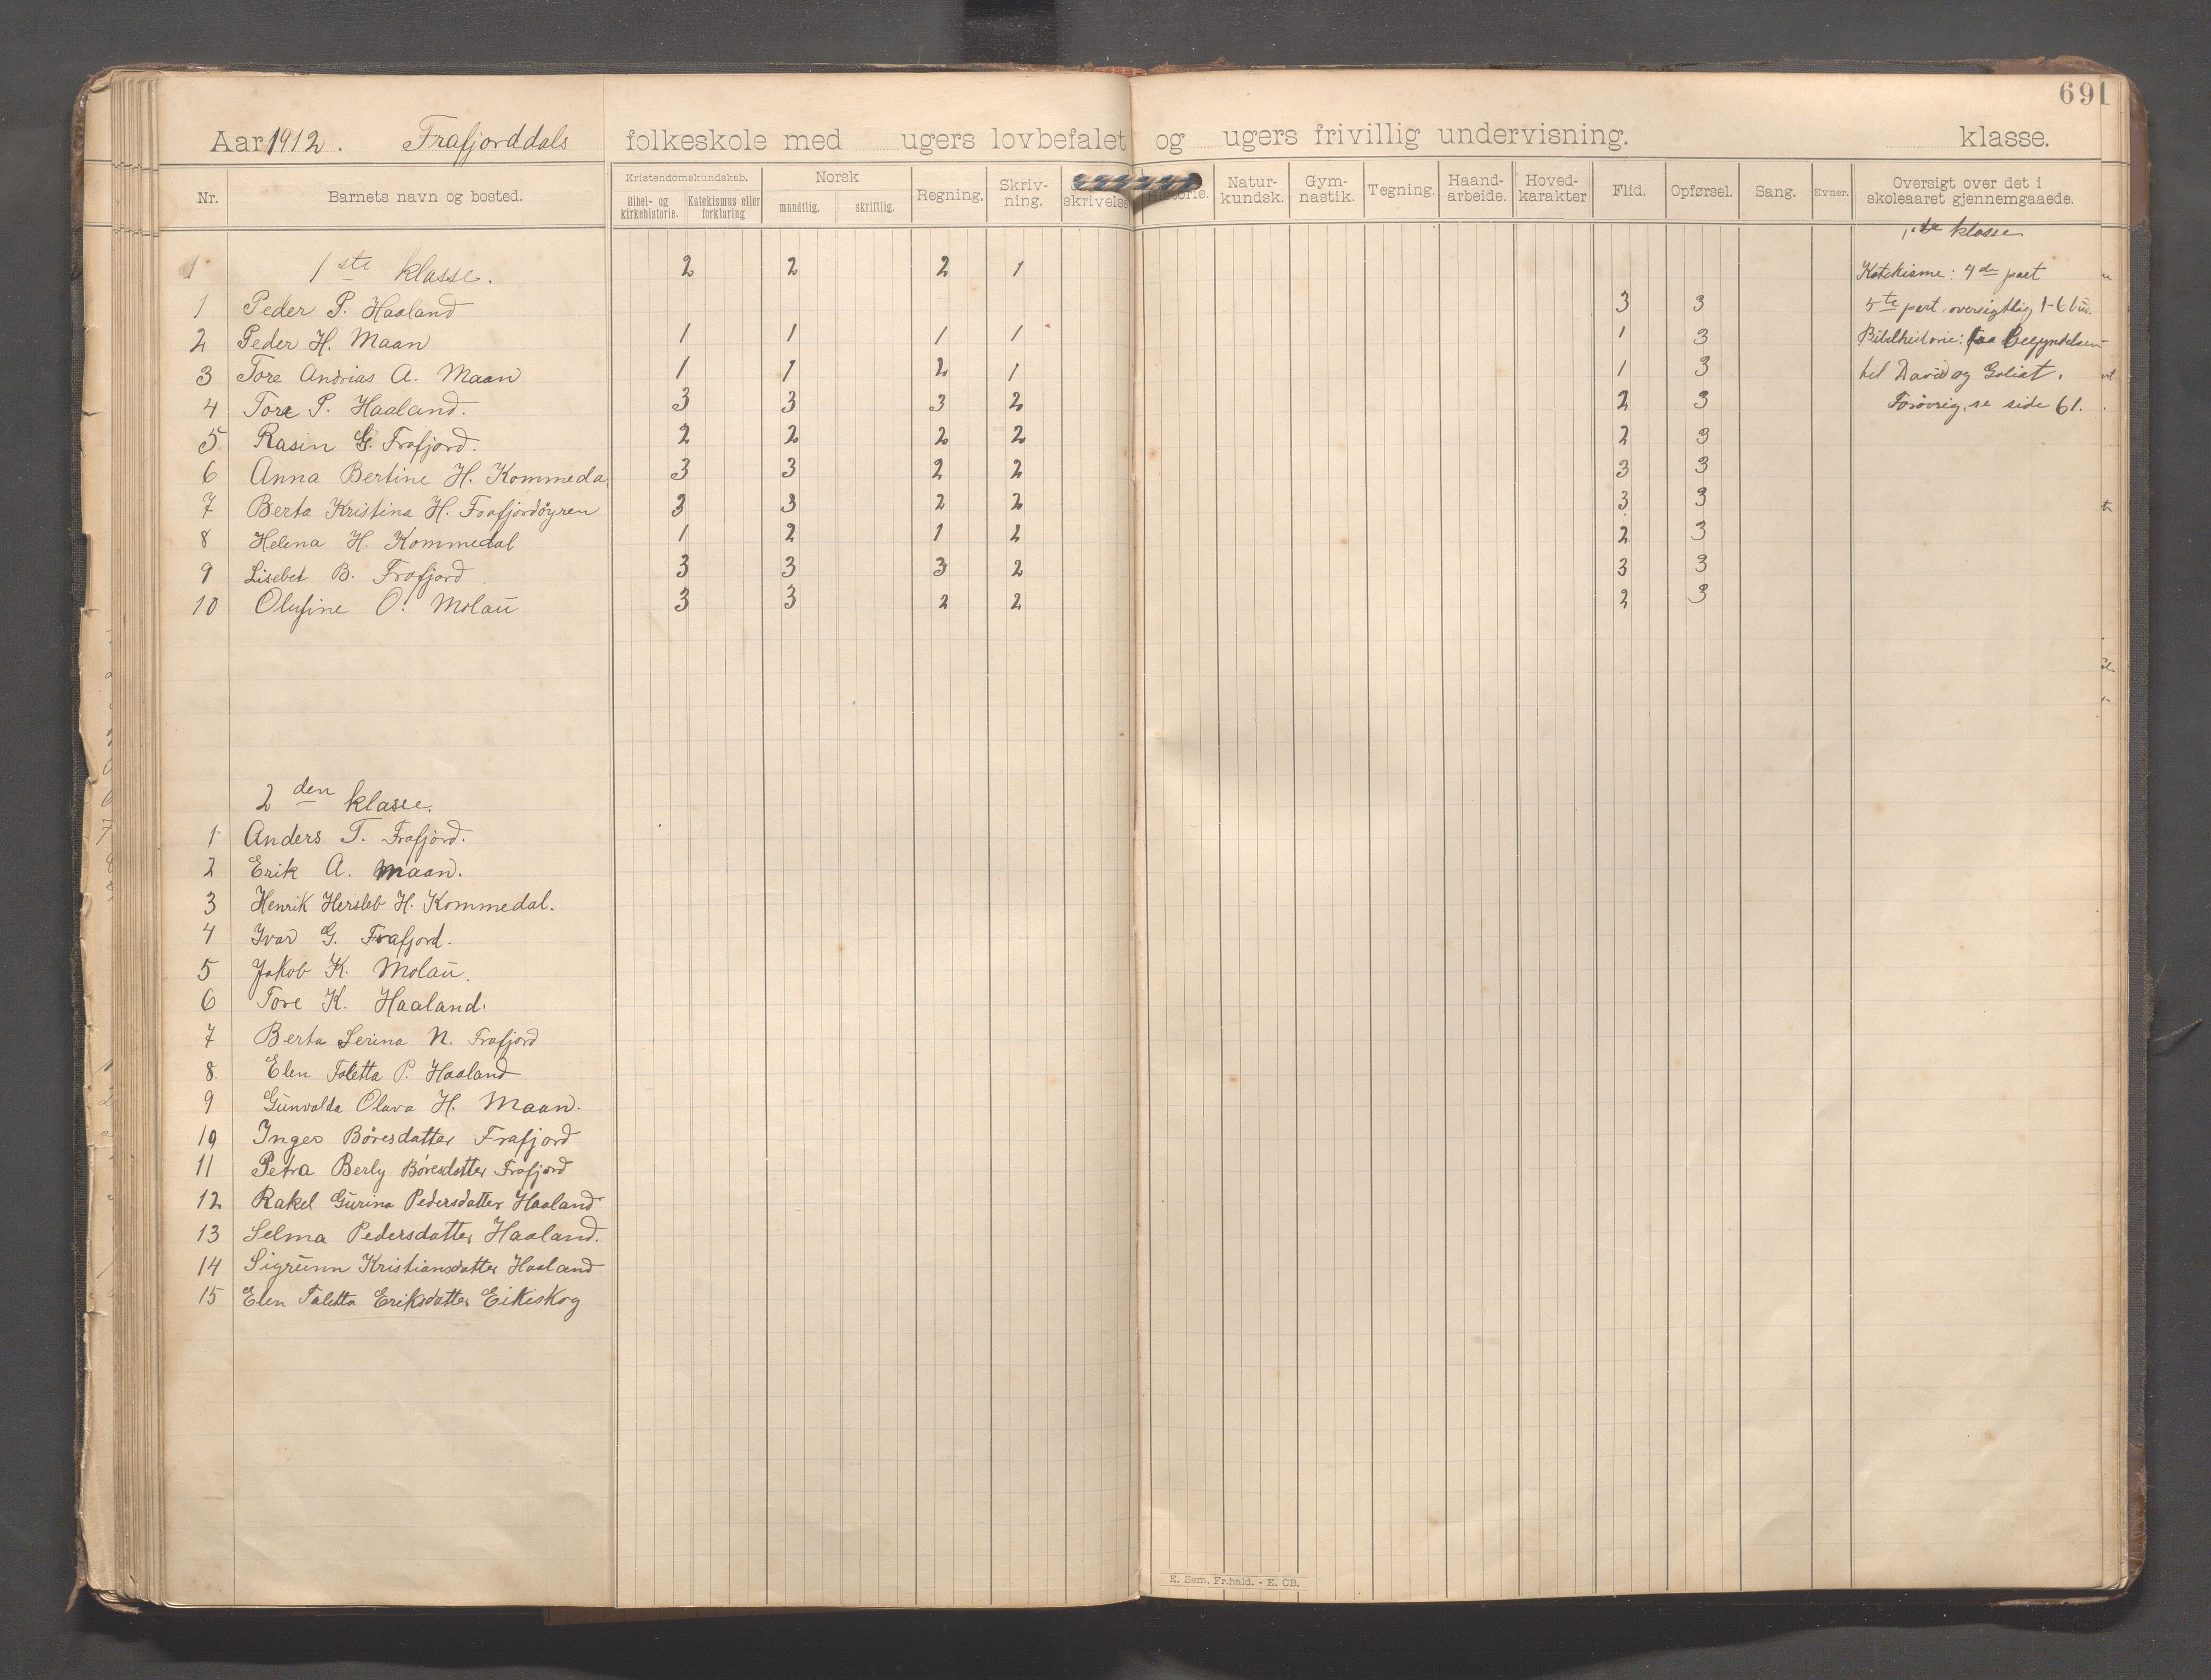 691
Aar 1912. Frafjorddals folkeskole med ugers lovbefalet og ugers frivillig undervisning. klasse.
Nr. Barnets navn og bosted. Kristendomskundskab. Bibel- og kirkehistorie. Katekismus eller forklaring Norsk mundtlig. skriftlig. Regning. Skriv-ning. skrivelse Historie. Natur-kundsk. Gym-nastik. Tegning. Haand-arbeide. Hoved-karakter Flid. Opførsel. Sang. Evner. Oversigt over det i skoleaaret gjennemgaaede.
1 1ste klasse. 2 2 2 1
1 Peder P. Haaland 3 3
2 Peder H. Maan 1 1 1 1 1 3
3 Tore Andrias A. Maan 1 1 2 1 1 3
4 Tore P. Haaland. 3 3 3 2 2 3
5 Rasin G. Frafjord. 2 2 2 2 2 3
6 Anna Bertine H. Kommedal 3 3 2 2 3 3
7 Berta Kristina H. Frafjordöyren 3 3 2 2 3 3
8 Helena H. Kommedal 1 2 1 2 2 3
9 Lisebet B. Frafjord 3 3 3 2 3 3
10 Olufine O. Molaŭ 3 3 2 2 2 3
1ste klasse
Katekisme: 4de part
5te part, oversigtlig 1-6 bud.
Bibelhistorie: fra Begyndelsen
til David og Goliat.
Forøvrig, se side 61.
2den klasse.
1 Anders T. Frafjord.
2 Erik A. Maan.
3 Henrik Hersleb H. Kommedal.
4 Ivar G. Frafjord.
5 Jakob K. Molaŭ.
6 Tore K. Haaland.
7 Berta Serina N. Frafjord
8. Elen Taletta P. Haaland
9 Gŭnvalda Olava H. Maan.
10 Inger Böresdatter Frafjord
11 Petra Berly Böresdatter Frafjord
12 Rakel Gŭrina Pedersdatter Haaland
13 Selma Pedersdatter Haaland.
14 Sigrŭnn Kristiansdatter Haaland
15 Elen Taletta Eriksdatter Eikeskog
E. Sem. Fr.hald. - E. OB.